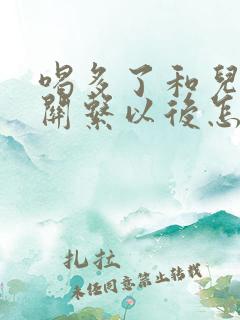 喝多了和兒
關繫以後怎
扎拉
未经同意禁止转载